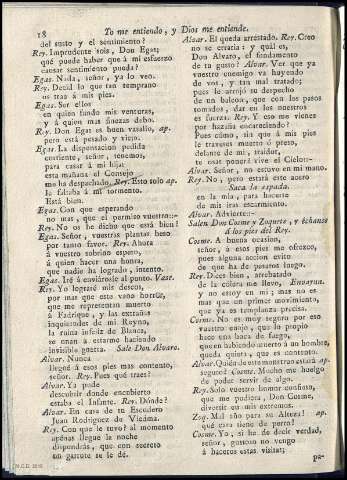 18
Yo me entiendo, y Dios me entiende.
del susto y el sentimiento?
Rey. Imprudente sois, Don Egas;
qué puede haber que á mi esfuerzo
causar sentimiento pueda?
Egas. Nada, señor, ya lo veo.
Rey. Decid lo que tan temprano
os trae á mis pies.
Egas. Ser ellos
en quien fundo mis venturas,
y á quien mas finezas debo.
Rey. Don Egas es buen vasallo, ap.
pero está pesado y viejo.
Egas. La dispensacion pedida
conviente, señor, tenemos,
para casar á mi hija:
esta mañana el Consejo
me ha despachado. Rey. Esto solo ap.
le faltaba á mi tormento.
Está bien.
Egas. Con que esperando
no mas, que el permiso vuestro:-
Rey. No os he dicho que está bien?
Egas. Señor, vuestras plantas beso
por tanto favor. Rey. Ahora
á vuestro sobrino espero,
á quien hacer una honra,
que nadie ha logrado, intento.
Egas. Iré á enviárosle al punto. Vase.
Rey. Yo lograré mis deseos,
por mas que esta vano horror,
que me representan muerto
á Fadrique, y las extrañas
inquietudes de mi Reyno,
la ruina infeliz de Blanca,
se unan á estarme haciendo
invisible guerra. Sale Don Alvaro.
Alvar. Nunca
llegué á esos pies mas contento,
señor. Rey. Pues qué traes?
Alvar. Ya pude
descubrir donde encubierto
estaba el Infante. Rey. Dónde?
Alvar. En casa de tu Escudero
Juan Rodriguez de Viedma.
Rey. Con que le tuvo? al momento
apénas llegue la noche
dispondrás, que con secreto
en garrote se le dé.
Alvar. El queda arrestado. Rey. Creo
no se erraria: y quál es,
Don Alvaro, el fundamento
de tu gusto? Alvar. Ver que ya
vuestro enemigo va huyendo
de vos, y tan mal tratado,
pues le arrojó su despecho
de un balcon, que con los pasos
tomados, dar en los nuestros
es fuerza. Rey. Y eso me vienes
por hazaña encareciendo?
Pues cómo, sin que á mis pies
le traxeses muerto ó preso,
delante de mí, traidor,
te osas ponerá vive el Cielo:-
Alvar. Señor, no estuvo en mi mano.
Rey. No, pero estará este acero
Saca la espada.
en la mia, para hacerte
de mis iras escarmiento.
Alvar. Advierte:-
Salen Don Cosme y Zoquete, y échanse
á los pies del Rey.
Cosme. A buena ocasion,
señor, á esos pies me ofrezco,
pues alguna accion evito
de que ha de pesaros luego.
Rey. Dices bien, arrebatado
de la cólera me llevo, Envayna.
y no estoy en mí; mas no es
mas que un primer movimiento,
que ya es templanza precisa.
Cosme. No es muy seguro por eso
vuestro enojo, que lo propio
hace una boca de fuego,
que en habiendo muerto á un hombre,
queda quieta, y es contento.
Alvar. Quién de este monstruo estará ap.
seguro? Cosme. Mucho me huelgo
de poder servir de algo.
Rey. Solo vuestro humor confiesa,
que me pudiera, Don Cosme,
divertir en mis extremos.
Zoq. Mal año para su Alteza! ap.
qué cara tiene de perro!
Cosme. Yo, si he de decir verdad,
señor, gustoso no vengo
á haceros estas visitas;
pa-